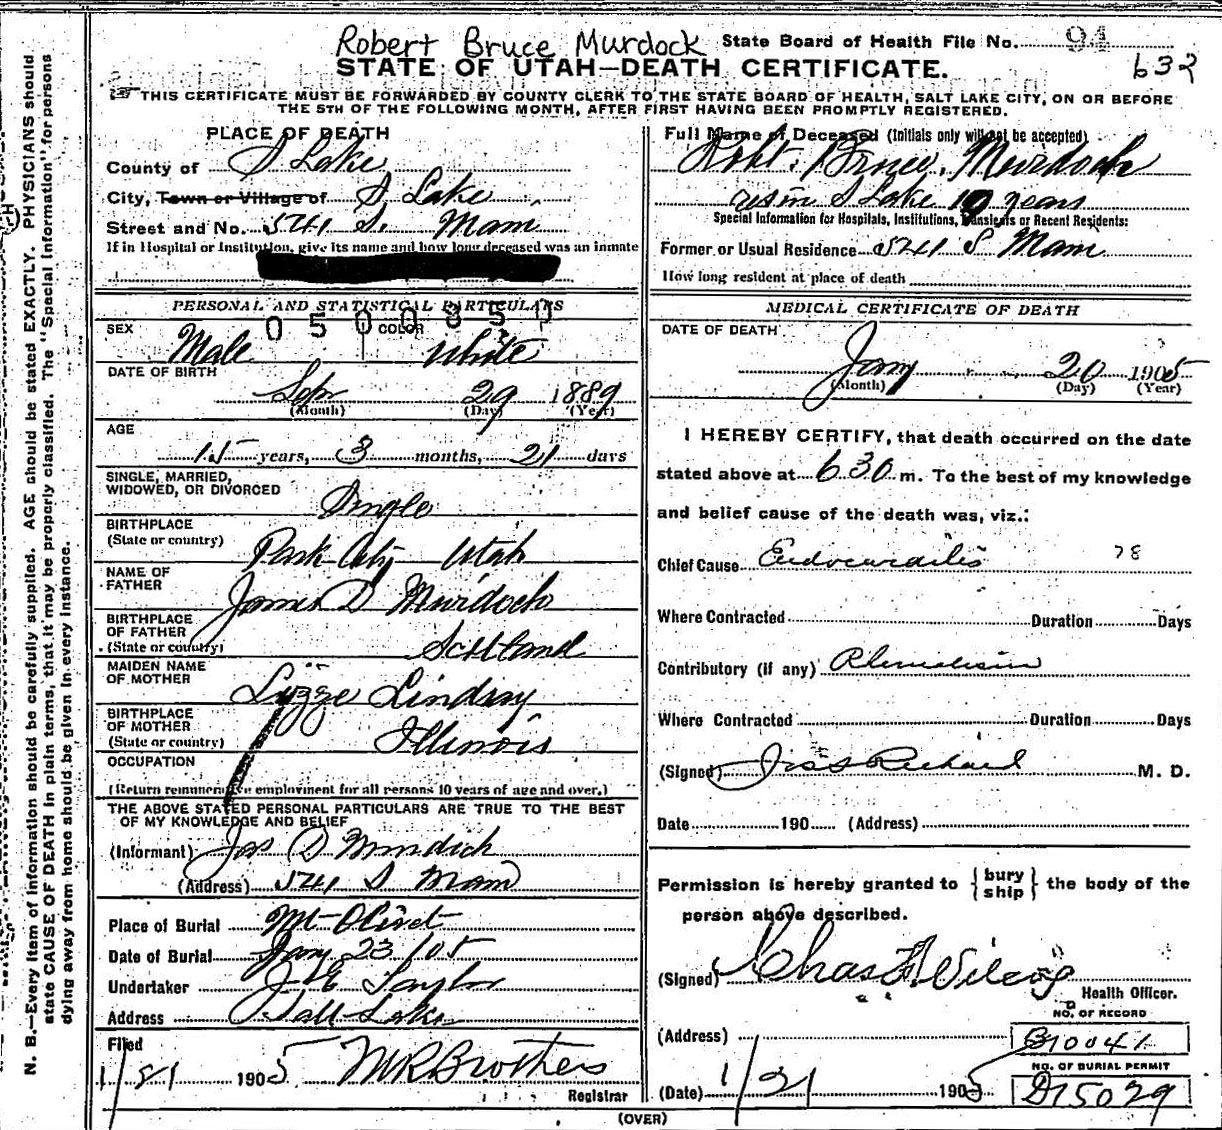 Robert Bruce Murdock State Board of Health File No. 94
632
STATE OF UTAH—DEATH CERTIFICATE.
THIS CERTIFICATE MUST BE FORWARDED BY COUNTY CLERK TO THE STATE BOARD OF HEALTH, SALT LAKE CITY, ON OR BEFORE
THE 5TH OF THE FOLLOWING MONTH, AFTER FIRST HAVING BEEN PROMPTLY REGISTERED.
PLACE OF DEATH
County of S Lake
City, Town or Village of S Lake
Street and No. 541 S. Main
If in Hospital or Institution, give its name and how long deceased was an inmate
PERSONAL AND STATISTICAL PARTICULARS
0500350
SEX Male COLOR White
DATE OF BIRTH
Sep 29 1889
(Month) (Day) (Year)
AGE
15 years, 3 months, 21 days
SINGLE, MARRIED,
WIDOWED, OR DIVORCED Single
BIRTHPLACE
(State or country) Park City Utah
NAME OF
FATHER James D Murdock
BIRTHPLACE
OF FATHER
(State or country) Scotland
MAIDEN NAME
OF MOTHER Lizzie Lindsay
BIRTHPLACE
OF MOTHER
(State or country) Illinois
OCCUPATION
(Return remunerative employment for all persons 10 years of age and over.)
THE ABOVE STATED PERSONAL PARTICULARS ARE TRUE TO THE BEST
OF MY KNOWLEDGE AND BELIEF
(Informant) Jas D Murdock
(Address) 541 S Main
Place of Burial Mt Olivet
Date of Burial Jany 23/05
Undertaker Taylor
Address Salt Lake
Filed
1/21 1905 Brothers
Registrar
Full Name of Deceased (Initials only will not be accepted)
Robt. Bruce Murdock
resin S Lake 10 years
Special Information for Hospitals, Institutions, Transients or Recent Residents:
Former or Usual Residence 541 S Main
How long resident at place of death
MEDICAL CERTIFICATE OF DEATH
DATE OF DEATH
Jany 20 1905
(Month) (Day) (Year)
I HEREBY CERTIFY, that death occurred on the date
stated above at 630 m. To the best of my knowledge
and belief cause of the death was, viz.:
Chief Cause Endocarditis 78
Where Contracted Duration Days
Contributory (if any) Rheumatism
Where Contracted Duration Days
(Signed) Richard M. D.
Date 190 (Address)
Permission is hereby granted to {bury ship} the body of the
person above described.
(Signed) Chas F Wilcox
Health Officer.
NO. OF RECORD
(Address) B10041
NO. OF BURIAL PERMIT
(Date) 1/21 1905 D15029
(OVER)
N. B.—Every item of information should be carefully supplied. AGE should be stated EXACTLY. PHYSICIANS should
state CAUSE OF DEATH in plain terms, that it may be properly classified. The "Special Information" for persons
dying away from home should be given in every instance.